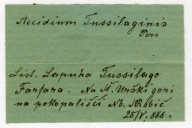 Aecidium Tussilaginis
Pers
List. Lapuha Tussilago
Farfara. Na Št. Urški gori
na pokopališči Ab. Robič
25/V. 866.